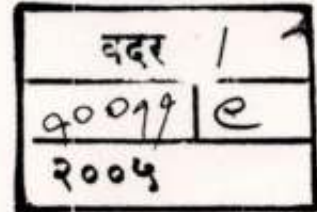 वदर /
१००११ | ९
२००५